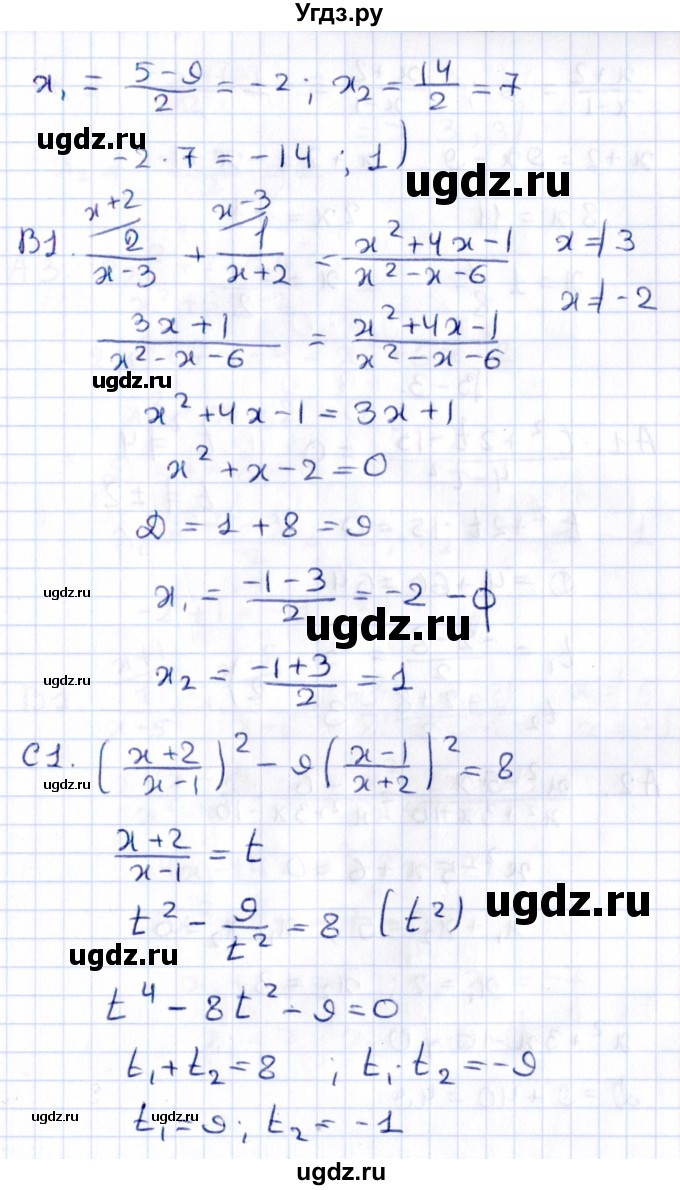 Угдз.ру
x₁ = (5-9)/2 = -2 ; x₂ = 14/2 = 7
ugdz.ru
-2 · 7 = -14 ; 1)
ugdz.ru
x+2 x-3
B1. 2/(x-3) + 1/(x+2) = (x²+4x-1)/(x²-x-6) x ≠ 3
x ≠ -2
(3x+1)/(x²-x-6) = (x²+4x-1)/(x²-x-6)
ugdz.ru
x²+4x-1 = 3x+1
x²+x-2 = 0
D = 1+8 = 9
ugdz.ru
x₁ = (-1-3)/2 = -2 - ф
ugdz.ru
ugdz.ru
x₂ = (-1+3)/2 = 1
C1. ((x+2)/(x-1))² - 9((x-1)/(x+2))² = 8
ugdz.ru
(x+2)/(x-1) = t
t² - 9/t² = 8 (t²)
ugdz.ru
ugdz.ru
t⁴ - 8t² - 9 = 0
t₁ + t₂ = 8 ; t₁ · t₂ = -9
ugdz.ru
ugdz.ru
t₁ = 9 ; t₂ = -1
ugdz.ru